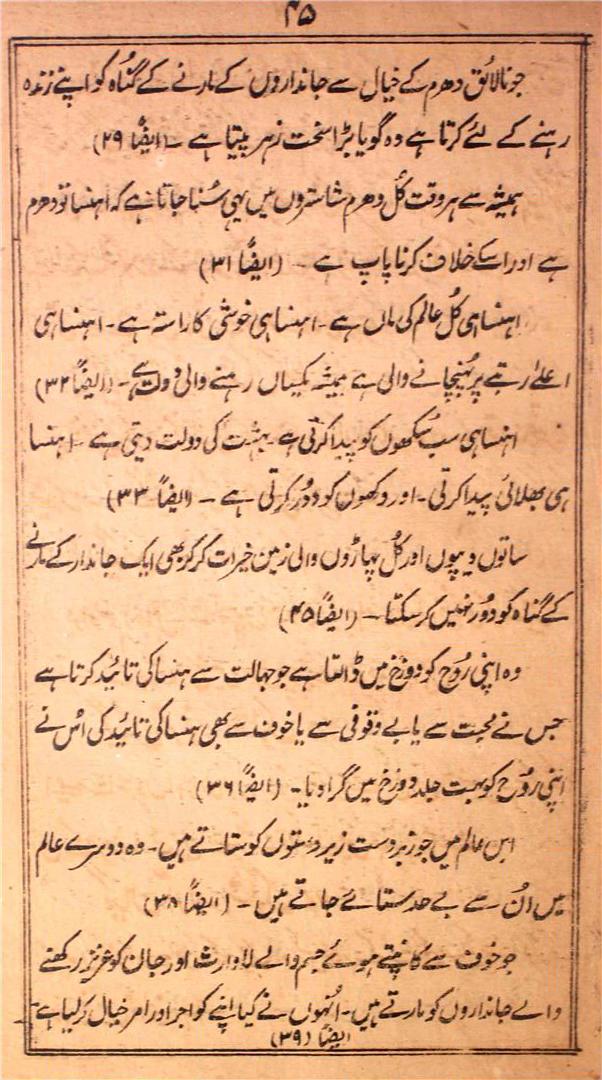 ۴۵
جو نالائق دھرم کے خیال سے جانداروں کے مارنے کے گناہ کو اپنے زندہ
رہنے کے لئے کرتا ہے وہ گویا بڑا سخت زہر پیتا ہے ۔ (ایضاً ۲۹)
ہمیشہ سے ہر وقت کُل دھرم شاستروں میں یہی سُنا جاتا ہے کہ اہنسا تو دھرم
ہے اور اسکے خلاف کرنا پاپ ہے ۔ (ایضاً ۳۱)
اہنسا ہی کُل عالم کی ماں ہے ۔ اہنسا ہی خوشی کا راستہ ہے ۔ اہنسا ہی
اعلےٰ رتبے پر پُہنچانے والی ہے ہمیشہ یکساں رہنے والی دولت ہے ۔ (ایضاً ۳۲)
اہنسا ہی سب سُکھوں کو پیدا کرتی ہے ۔ بہشت کی دولت دیتی ہے ۔ اہنسا
ہی بھلائی پیدا کرتی ۔ اور دکھوں کو دُور کرتی ہے ۔ (ایضاً ۳۳)
ساتوں دیپوں اور کُل پہاڑوں والی زمین خیرات کر کر بھی ایک جاندار کے مارنے
کے گناہ کو دُور نہیں کر سکتا ۔ (ایضاً ۴۵)
وہ اپنی رُوح کو دوزخ میں ڈالتا ہے جو جہالت سے ہنسا کی تائید کرتا ہے
جس نے محبت سے یا بے وقوفی سے یا خوف سے بھی ہنسا کی تائید کی اُس نے
اپنی رُوح کو بہت جلد دوزخ میں گرا دیا ۔ (ایضاً ۳۶)
اس عالم میں جو زبردست زیردستوں کو ستاتے ہیں ۔ وہ دوسرے عالم
میں اُن سے بے حد ستائے جاتے ہیں ۔ (ایضاً ۳۸)
جو خوف سے کانپتے ہوئے جسم والے لاوارث اور جان کو عزیز رکھنے
والے جانداروں کو مارتے ہیں ۔ اُنہوں نے کیا اپنے کو اجر اور امر خیال کر لیا ہے ۔
ایضاً (۳۹)